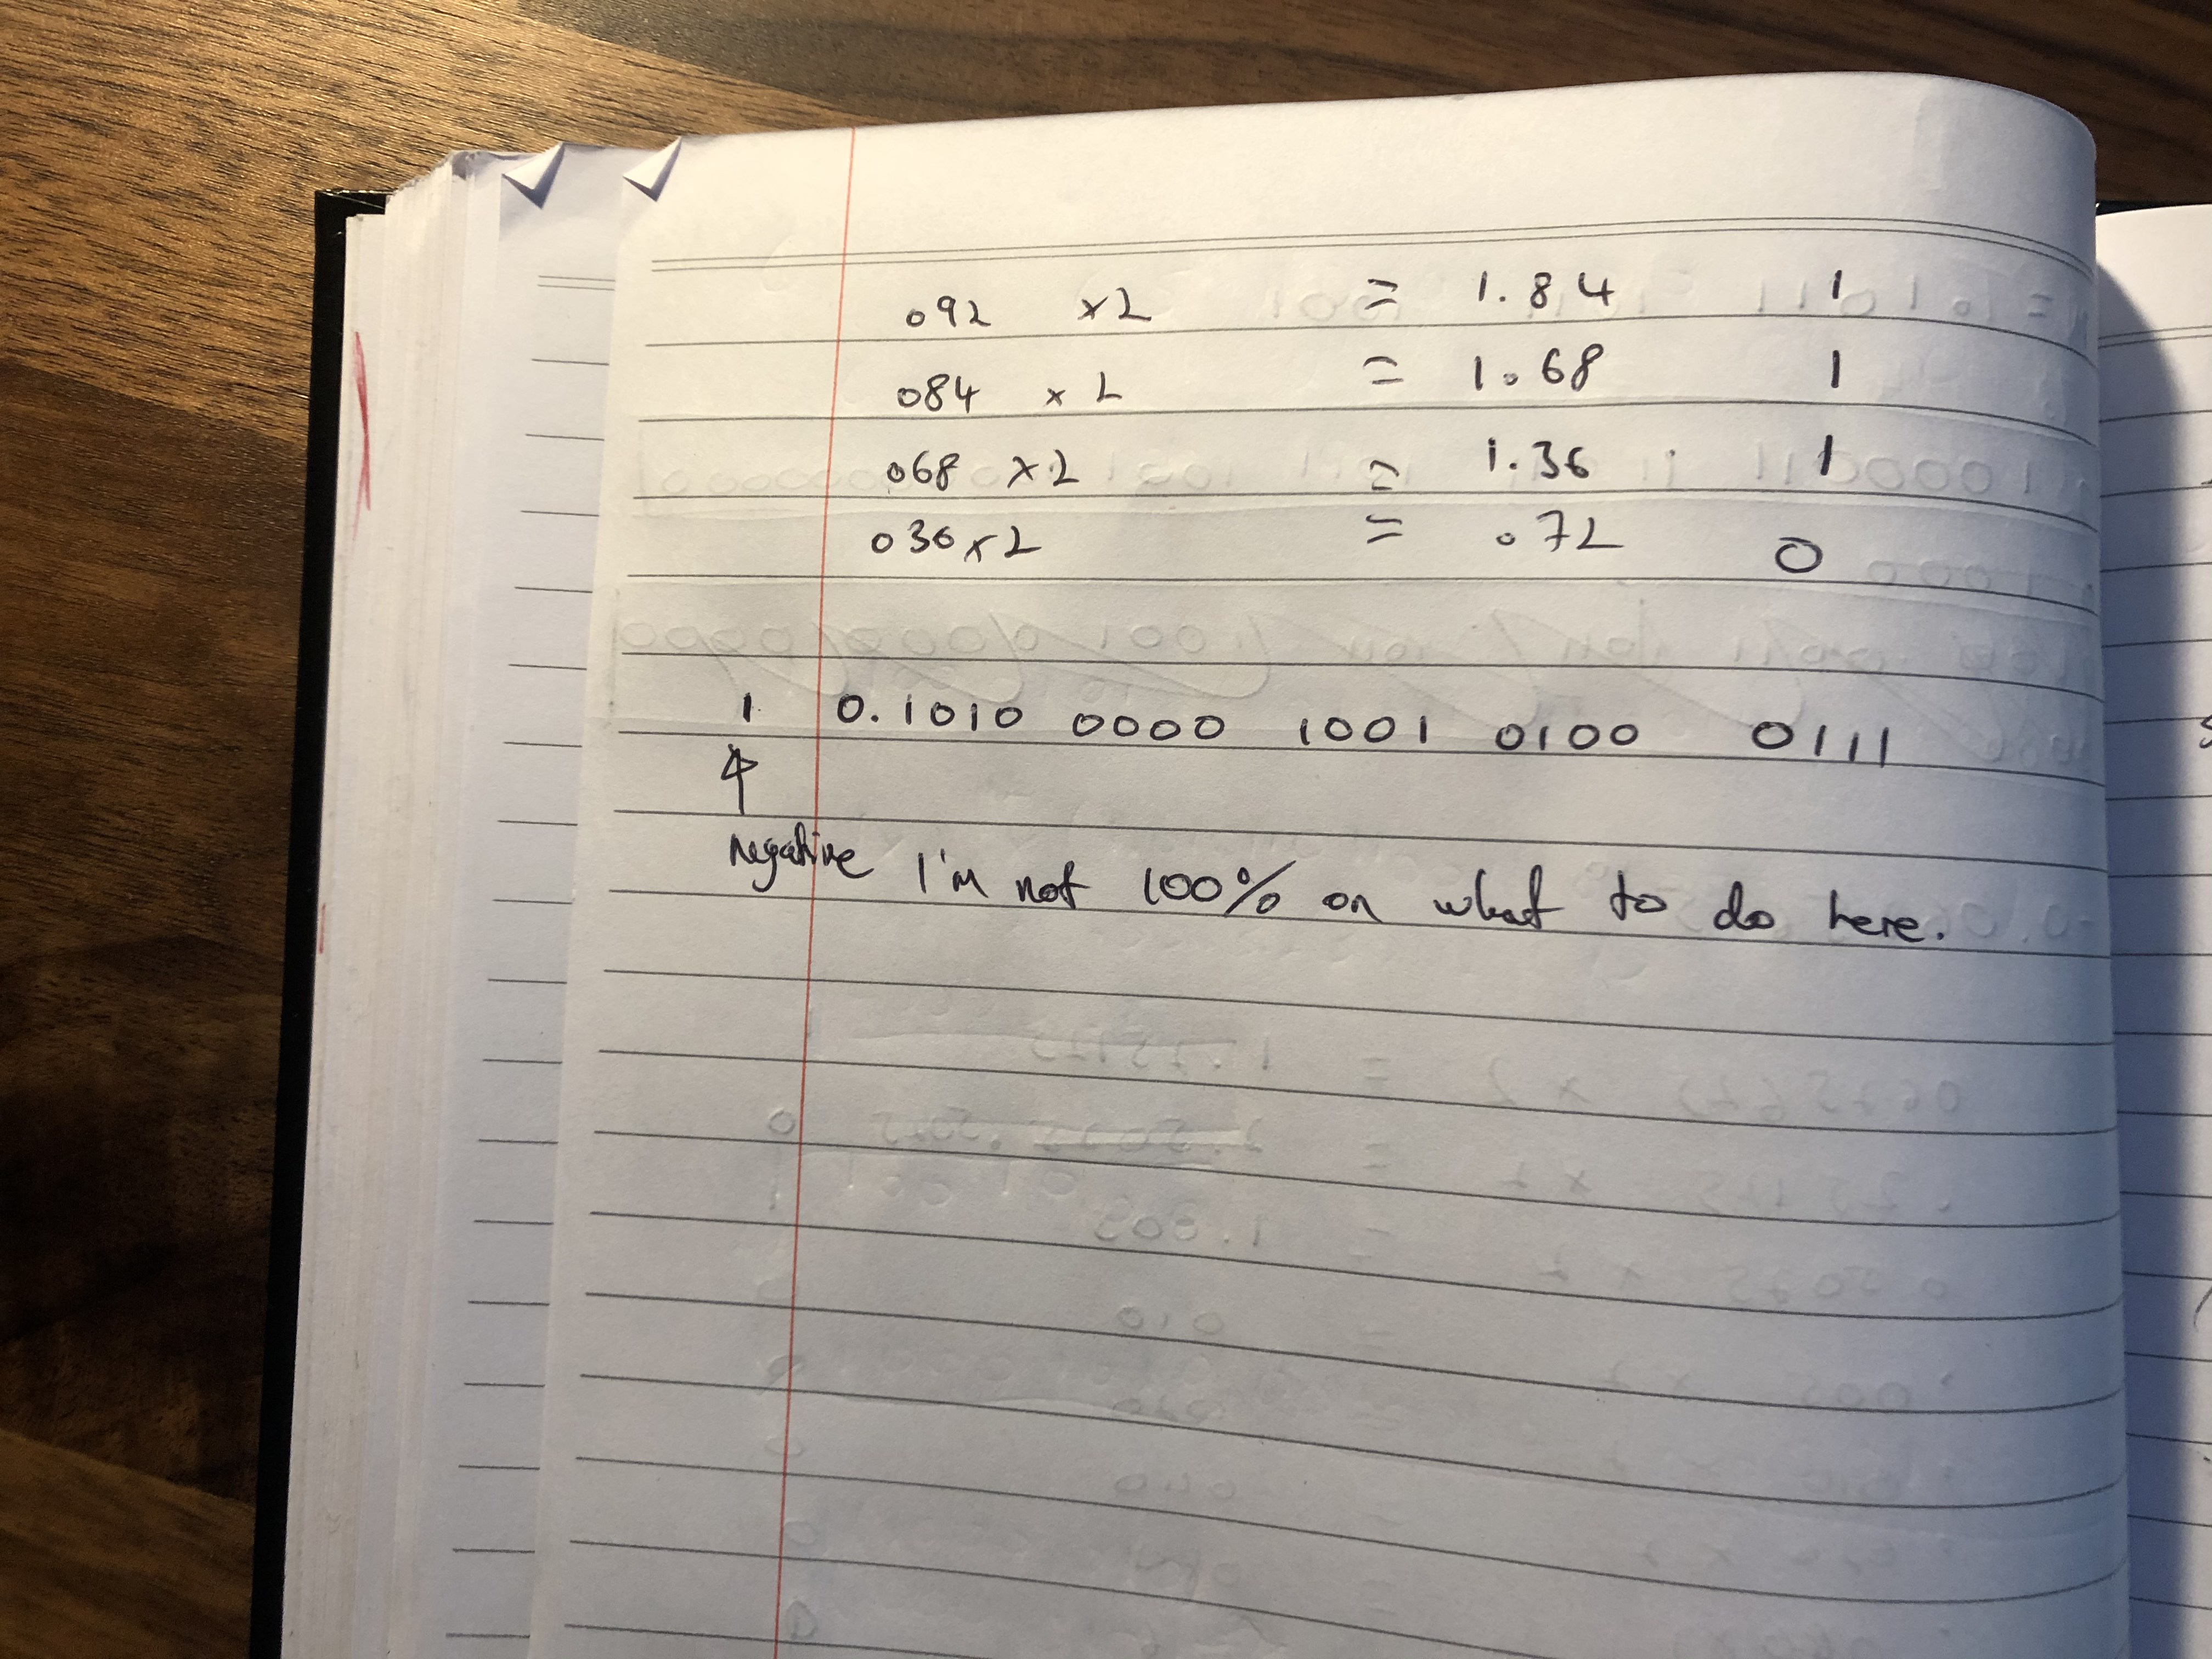 092 x2 = 1.84 1
084 x 2 = 1.68 1
068 x2 = 1.36 1
036x2 = .72 0
1 0.1010 0000 1001 0100 0111
negative I'm not 100% on what to do here.